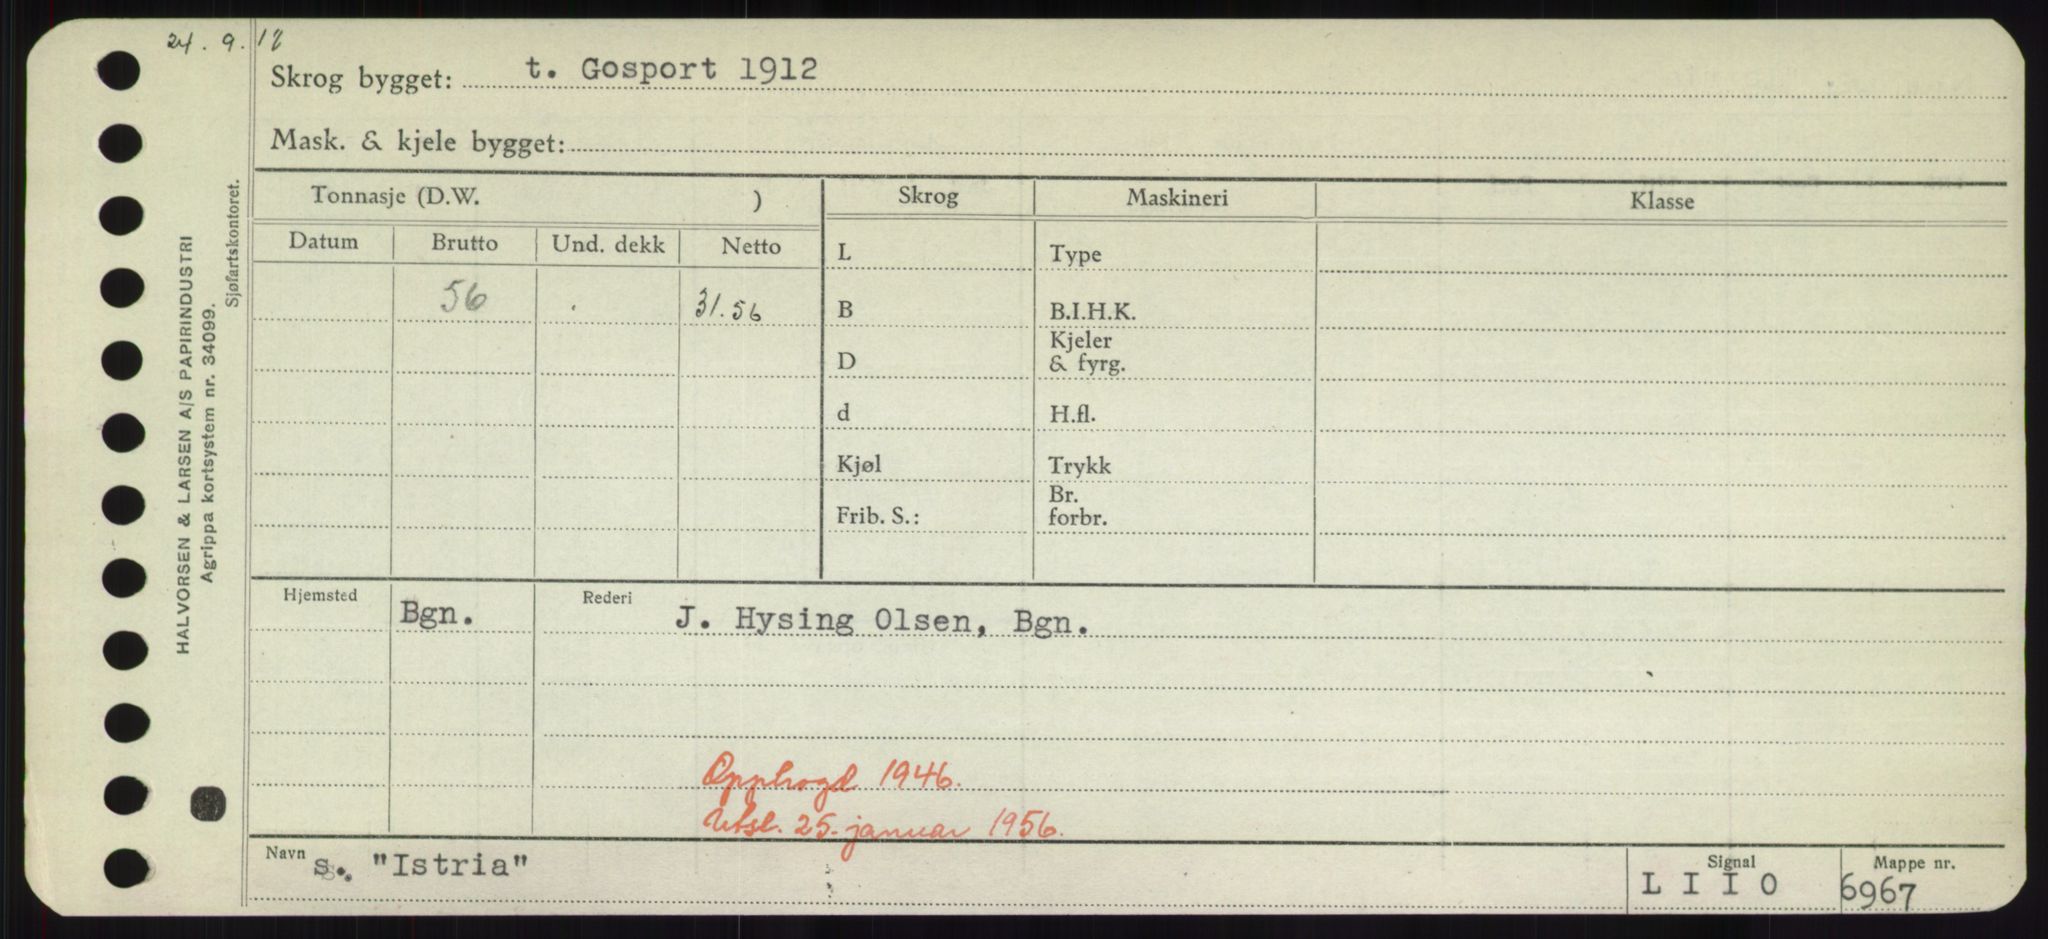 24. 9. 18
Skrog bygget: t. Gosport 1912
Mask. & kjele bygget:
HALVORSEN & LARSEN A/S PAPIRINDUSTRI
Agrippa kortsystem nr. 34099.
Sjøfartskontoret.
Tonnasje (D.W. ) Skrog Maskineri Klasse
Datum Brutto Und. dekk Netto
L Type
56 31.56 B B.I.H.K.
D Kjeler
& fyrg.
d H.fl.
Kjøl Trykk
Frib. S.: Br.
forbr.
Hjemsted Bgn. Rederi J. Hysing Olsen, Bgn.
Opphogd 1946.
Utsl. 25. januar 1956.
Navn s. "Istria" Signal L I I O Mappe nr. 6967